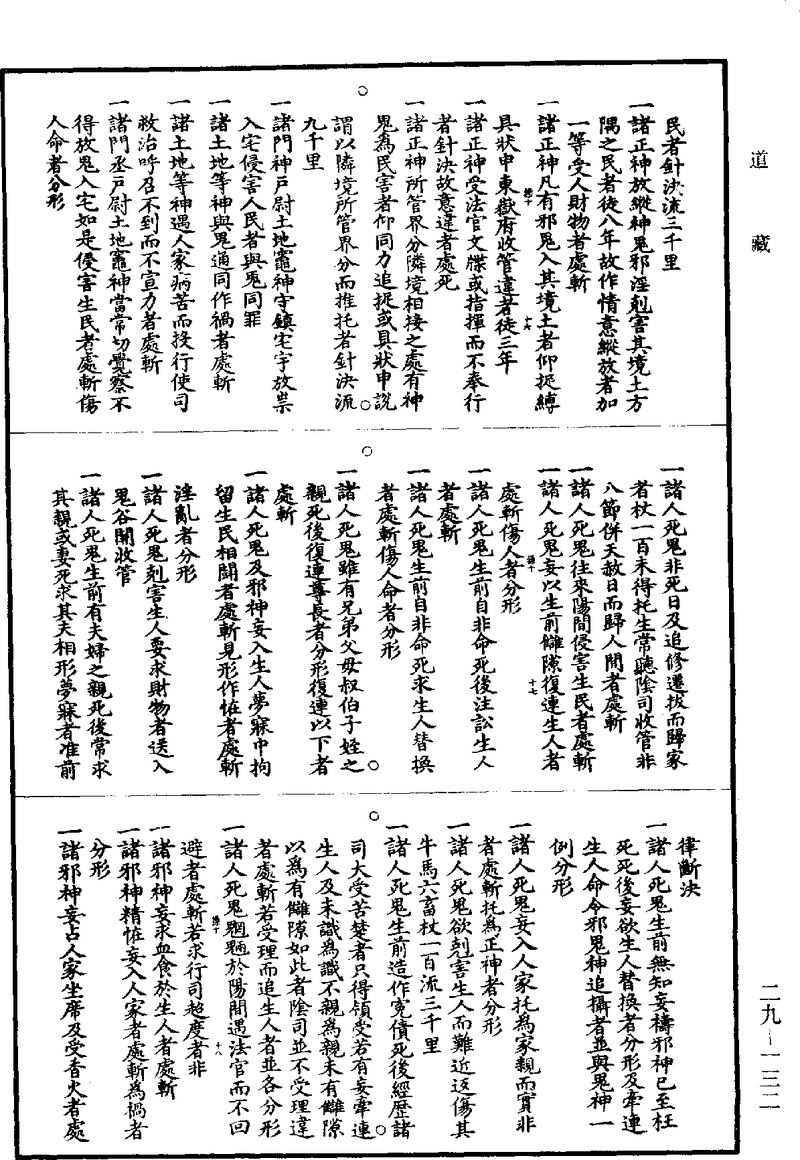 道藏
民者針決流三千里
一諸正神故縱神鬼邪淫剋害其境土方
隅之民者徒八年故作情意縱放者加
一等受人財物者處斬
一諸正神凡有邪鬼入其境土者仰捉縛
具狀申東嶽府收管違者徒三年
一諸正神受法官文牒或指揮而不奉行
者針決故意違者處死
一諸正神所管界分隣境相接之處有神
鬼為民害者仰同力追捉或具狀申說
謂以隣境所管界分而推托者針決流
九千里
一諸門神戶尉土地竈神守鎮宅宇放祟
入宅侵害人民者與鬼同罪
一諸土地等神與鬼通同作禍者處斬
一諸土地等神遇人家病苦而投行使司
救治呼召不到而不宣力者處斬
一諸門丞戶尉土地竈神當常切覺察不
得放鬼入宅如是侵害生民者處斬傷
人命者分形
一諸人死鬼非死日及追修遷拔而歸家
者杖一百未得托生常聽陰司收管非
八節併天赦日而歸人間者處斬
一諸人死鬼往來陽間侵害生民者處斬
一諸人死鬼妄以生前讎隙復連生人者
處斬傷人者分形
一諸人死鬼生前自非命死後注訟生人
者處斬
一諸人死鬼生前自非命死求生人替換
者處斬傷人命者分形
一諸人死鬼雖有兄弟父母叔伯子姪之
親死後復連尊長者分形復連以下者
處斬
一諸人死鬼及邪神妄入生人夢寐中拘
留生民相鬪者處斬見形作怪者處斬
淫亂者分形
一諸人死鬼剋害生人要求財物者送入
鬼谷關收管
一諸人死鬼生前有夫婦之親死後常求
其親或妻死求其夫相形夢寐者准前
律斷決
一諸人死鬼生前無知妄禱邪神已至枉
死死後妄欲生人替換者分形及牽連
生人命令邪鬼神追攝者並與鬼神一
例分形
一諸人死鬼妄入人家托為家親而實非
者處斬托為正神者分形
一諸人死鬼欲剋害生人而難近返傷其
牛馬六畜杖一百流三千里
一諸人死鬼生前造作冤債死後經歷諸
司大受苦楚者只得領受若有妄牽連
生人及未識為識不親為親未有讎隙
以為有讎隙如此者陰司並不受理違
者處斬若受理而追生人者並各分形
一諸人死鬼魍魎於陽間遇法官而不回
避者處斬若求行司超度者非
一諸邪神妄求血食於生人者處斬
一諸邪神精怪妄入人家者處斬為禍者
分形
一諸邪神妄占人家坐席及受香火者處
十六
十七
十八
二九-一三二